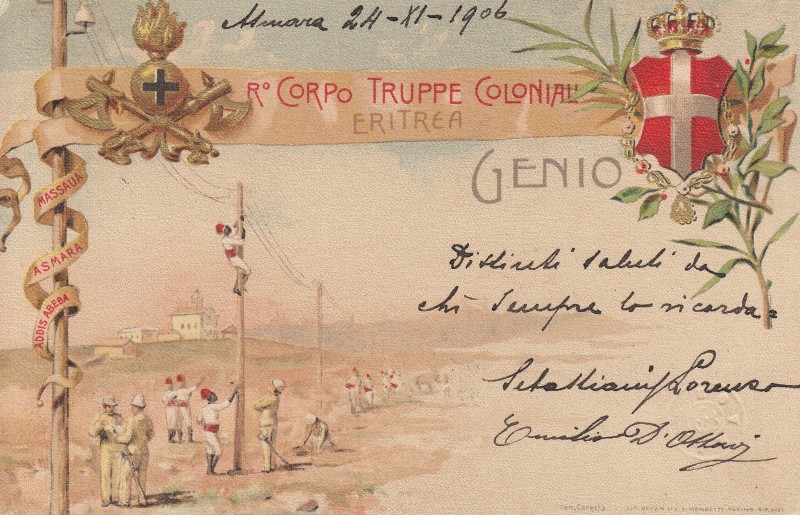 Asmara 24-XI-1906
Rº CORPO TRUPPE COLONIALI
ERITREA
GENIO
MASSAUA
ASMARA
ADDIS ABEBA
FERT
Distinti saluti da
chi sempre lo ricorda=
Sebastiani Lorenzo
Emilio D'
Ten. Caretta